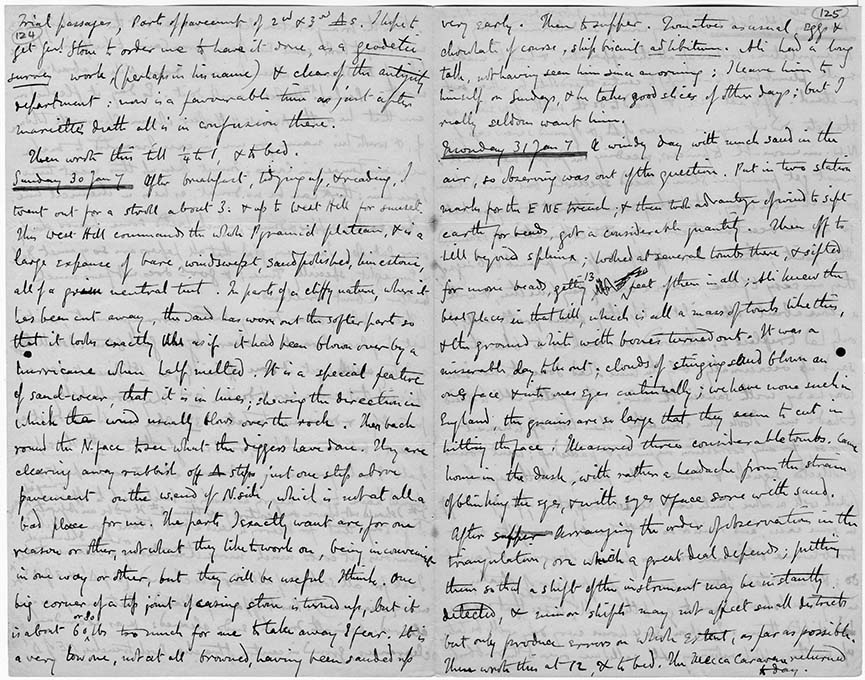 124
Trial passages, Parts of pavement of 2nd & 3rd Δs. I hope to
get Genl Stone to order me to have it done, as a geodetic
survey work (perhaps in his name) & clear of the antiquity
department: now is a favourable time as just after
Mariette's death all is in confusion there.
Then wrote this till ¼ to 1, & to bed.
Sunday 30 Jan 7 After breakfast tidying up, & reading, I
went out for a stroll about 3. & up to West Hill for sunset.
This West Hill commands the whole Pyramid plateau, & is a
large expanse of bare, windswept, sandpolished, limestone,
all of a neutral tint. In parts of a cliffy nature, where it
has been cut away, the sand has worn out the softer parts so
that it looks exactly as if it had been blown over by a
hurricane when half melted. It is a special feature
of sand-wear that it is in lines, shewing the direction in
which the wind usually blows over the rock. Then back
round the N. face to see what the diggers have done. They are
clearing away rubbish off steps just one step above
pavement on the W. end of N. side, which is not at all a
bad place for me. The parts I exactly want are, for one
reason or other, not what they like to work on, being inconvenient
in one way or other, but they will be useful I think. One
big corner of a top joint of casing stone is turned up, but it
is about 60 or 80 lbs too much for me to take away I fear. It is
a very low one, not at all browned, having been sanded up
125
very early. Then to supper. Tomatoes as usual, eggs &
chocolate of course, ship biscuit ad libitum. Ali had a long
talk, not having seen him since morning; I leave him to
himself on Sundays, & he takes good slices of other days; but I
really seldom want him.
Monday 31 Jan 7 A windy day with much sand in the
air, so observing was out of the question. Put in two station
marks for the ENE trench, & then took advantage of wind to sift
earth for beads, got a considerable quantity. Then off to
hill beyond sphinx; looked at several tombs there, & sifted
for more beads, getting 13 feet of them in all; Ali knew the
best places in that hill, which is all a mass of tombs like this,
& the ground white with bones turned out. It was a
miserable day to be out; clouds of stinging sand blown on
ones face & into ones eyes continually; we have none such in
England, the grains are so large that they seem to cut in
hitting the face. Measured three considerable tombs. Came
home in the dusk, with rather a headache from the strain
of blinking the eyes, & with eyes & face sore with sand.
After supper arranging the order of observation in the
triangulation, on which a great deal depends; putting
them so that a shift of the instrument may be instantly
detected, & minor shifts may not affect small districts
but only produce errors on whole extent, as far as possible.
Then wrote this at 12, & to bed. The Mecca Caravan returned
to day.